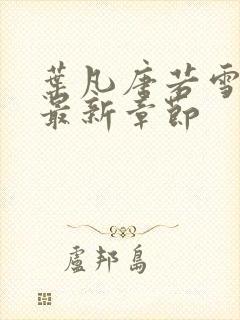 葉凡唐若雪
最新章節
盧邦島